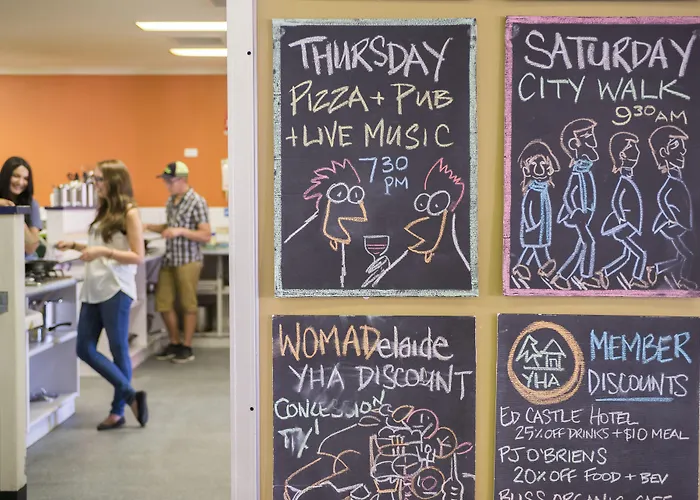 THURSDAY
PIZZA + PUB
+ LIVE MUSIC
7 30
PM
SATURDAY
CITY WALK
9 30 AM
WOMADelaide
YHA DISCOUNT
CONCESSION
TIX!
YHA
MEMBER
DISCOUNTS
ED CASTLE HOTEL
25% OFF DRINKS + $10 MEAL
PJ O'BRIENS
20% OFF FOOD + BEV
BLISS ORGANIC CAFE